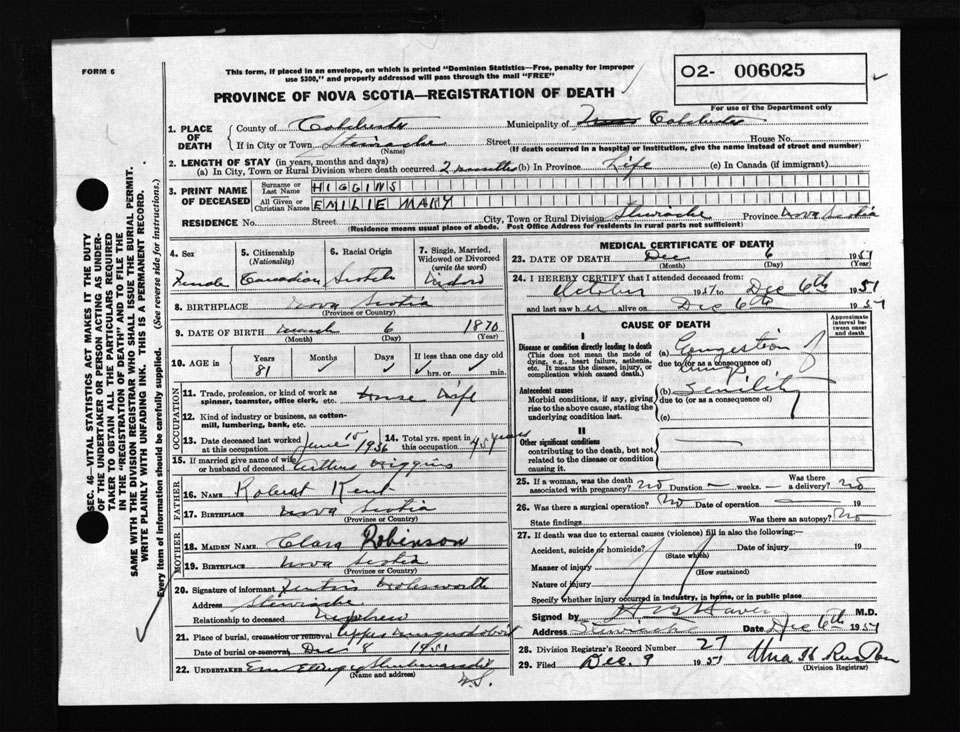 FORM 6
This form, if placed in an envelope, on which is printed "Dominion Statistics—Free, penalty for improper
use $300," and properly addressed will pass through the mail "FREE"
02- 006025
For use of the Department only
PROVINCE OF NOVA SCOTIA—REGISTRATION OF DEATH
1. PLACE OF DEATH
County of Colchester Municipality of Colchester
If in City or Town Stewiacke Street House No.
(Name) (If death occurred in a hospital or institution, give the name instead of street and number)
2. LENGTH OF STAY (in years, months and days)
(a) In City, Town or Rural Division where death occurred 2 months (b) In Province Life (c) In Canada (if immigrant)
3. PRINT NAME OF DECEASED
Surname or Last Name HIGGINS
All Given or Christian Names EMILIE MARY
RESIDENCE No. Street City, Town or Rural Division Stewiacke Province Nova Scotia
(Residence means usual place of abode. Post Office Address for residents in rural parts not sufficient)
4. Sex Female
5. Citizenship (Nationality) Canadian
6. Racial Origin Scotch
7. Single, Married, Widowed or Divorced (write the word)
8. BIRTHPLACE Nova Scotia
(Province or Country)
9. DATE OF BIRTH March 6 1870
(Month) (Day)
10. AGE in Years 81 Months Days If less than one day old hrs. or min.
OCCUPATION
11. Trade, profession, or kind of work as spinner, teamster, office clerk, etc. House Wife
12. Kind of industry or business, as cotton-mill, lumbering, bank, etc.
13. Date deceased last worked at this occupation June 15 1936
14. Total yrs. spent in this occupation 45 years
15. If married give name of wife or husband of deceased Higgins
FATHER
16. NAME Robert Kent
17. BIRTHPLACE Nova Scotia
(Province or Country)
MOTHER
18. MAIDEN NAME Clara Robinson
19. BIRTHPLACE Nova Scotia
(Province or Country)
20. Signature of informant
Address Stewiacke
Relationship to deceased Nephew
21. Place of burial, cremation or removal Upper Musquodoboit
Date of burial or removal Dec 8 1951
22. UNDERTAKER
(Name and address)
N.S.
MEDICAL CERTIFICATE OF DEATH
23. DATE OF DEATH Dec 6 1951
(Month) (Day) (Year)
24. I HEREBY CERTIFY that I attended deceased from:
October 1951 to Dec 6th 1951
and last saw her alive on Dec 6th 1951
CAUSE OF DEATH
Approximate interval between onset and death
I
Disease or condition directly leading to death
(This does not mean the mode of dying, e.g., heart failure, asthenia, etc. It means the disease, injury, or complication which caused death.)
(a) Congestion of
due to (or as a consequence of) Lungs
Antecedent causes
Morbid conditions, if any, giving rise to the above cause, stating the underlying condition last.
(b) Senility
due to (or as a consequence of)
(c)
II
Other significant conditions
contributing to the death, but not related to the disease or condition causing it.
25. If a woman, was the death associated with pregnancy? No Duration — weeks. — Was there a delivery? No
26. Was there a surgical operation? No Date of operation — 19
State findings Was there an autopsy? No
27. If death was due to external causes (violence) fill in also the following:—
Accident, suicide or homicide? Date of injury 19
(State which)
Manner of injury
(How sustained)
Nature of injury
Specify whether injury occurred in Industry, in home, or in public place
Signed by M.D.
Address Stewiacke Date Dec 6th 1951
28. Division Registrar's Record Number 27
29. Filed Dec. 9 1951
(Division Registrar)
SEC. 46—VITAL STATISTICS ACT MAKES IT THE DUTY
OF THE UNDERTAKER OR PERSON ACTING AS UNDER-
TAKER TO OBTAIN ALL THE PARTICULARS REQUIRED
IN THE "REGISTRATION OF DEATH" AND TO FILE THE
SAME WITH THE DIVISION REGISTRAR WHO SHALL ISSUE THE BURIAL PERMIT.
WRITE PLAINLY WITH UNFADING INK. THIS IS A PERMANENT RECORD.
Every item of information should be carefully supplied. (See reverse side for instructions.)